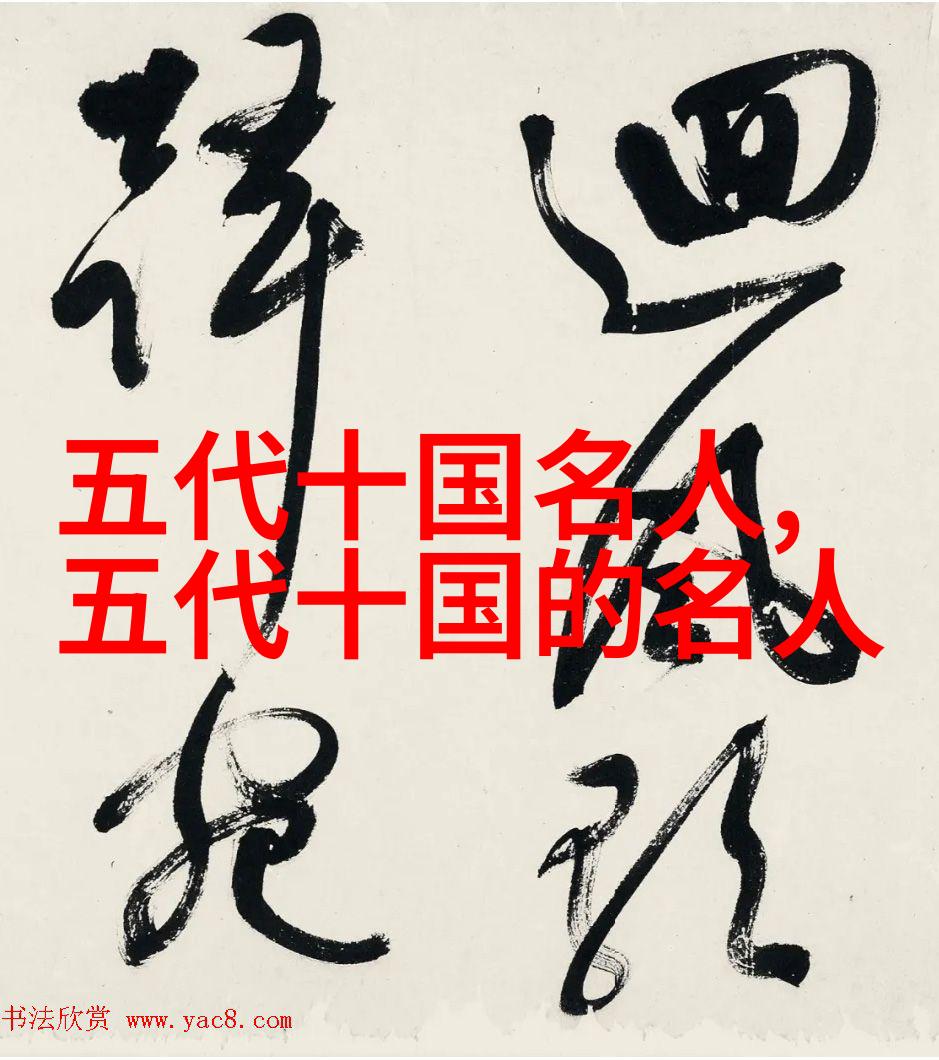 迴風
五代十国名人,
五代十国的名人
书法欣赏 www.yac8.com